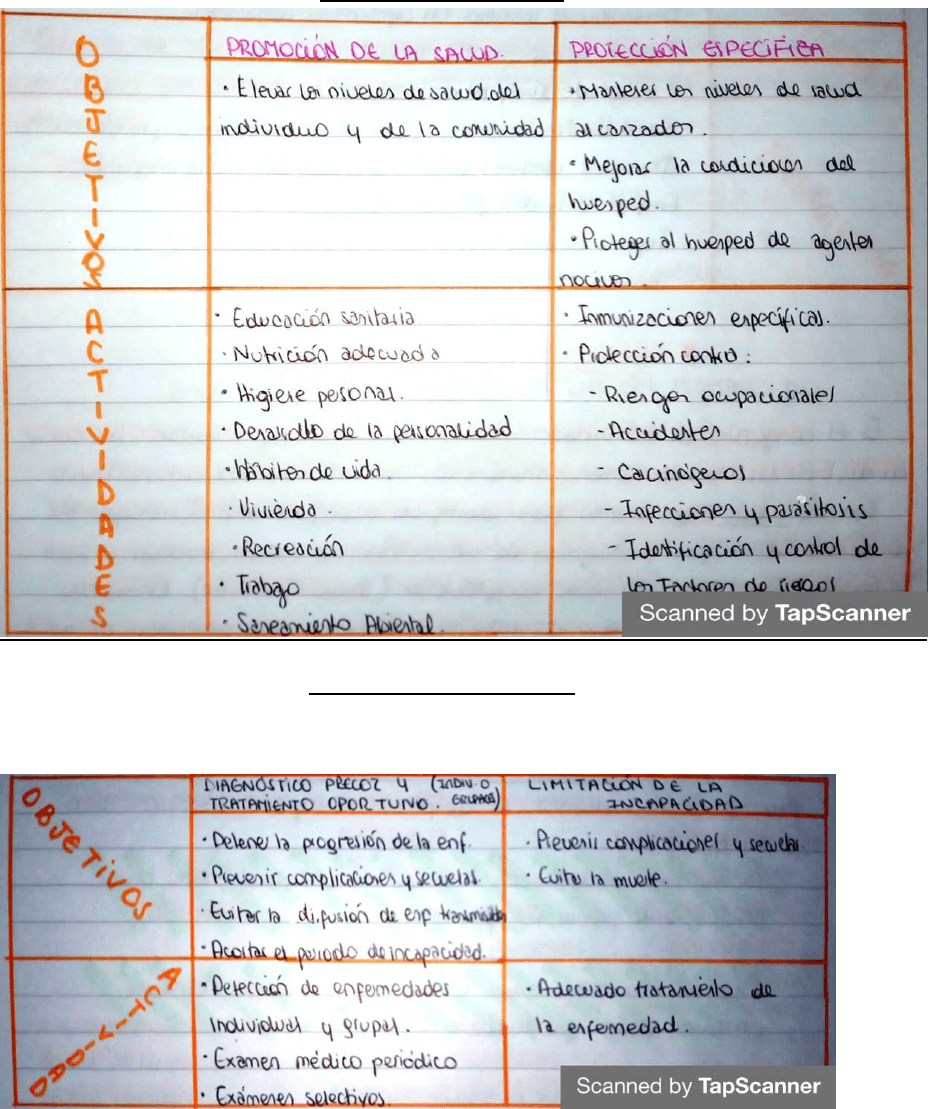 OBJETIVOS
PROMOCIÓN DE LA SALUD.
• Elevar los niveles de salud del
individuo y de la comunidad
PROTECCIÓN ESPECÍFICA
• Mantener los niveles de salud
alcanzados.
• Mejorar la condiciones del
huesped.
• Proteger al huesped de agentes
nocivos.
ACTIVIDADES
• Educación sanitaria
• Nutrición adecuada
• Higiene personal.
• Desarrollo de la personalidad
• Hábitos de vida
• Vivienda.
• Recreación
• Trabajo
• Saneamiento Abiental.
• Inmunizaciones específicas.
• Protección contra:
- Riesgos ocupacionales
- Accidentes
- Cacinógenos
- Infecciones y parásitosis
- Identificación y control de
los Factores de riesgos
Scanned by TapScanner
OBJETIVOS
DIAGNÓSTICO PRECOZ Y (INDIV. O
TRATAMIENTO OPORTUNO. GRUPAGS)
• Detener la progresión de la enf.
• Prevenir complicaciones y secuelas.
• Evitar la difusión de enf
• Acortar el periodo de incapacidad.
LIMITACIÓN DE LA
INCAPACIDAD
• Prevenir complicaciones y secuelas.
• Evitar la muerte.
ACTIVIDAD
• Detección de enfemedades
individual y grupal.
• Examen médico periódico
• Exámenes selectivos.
• Adecuado tratamiento de
la enfemedad.
Scanned by TapScanner